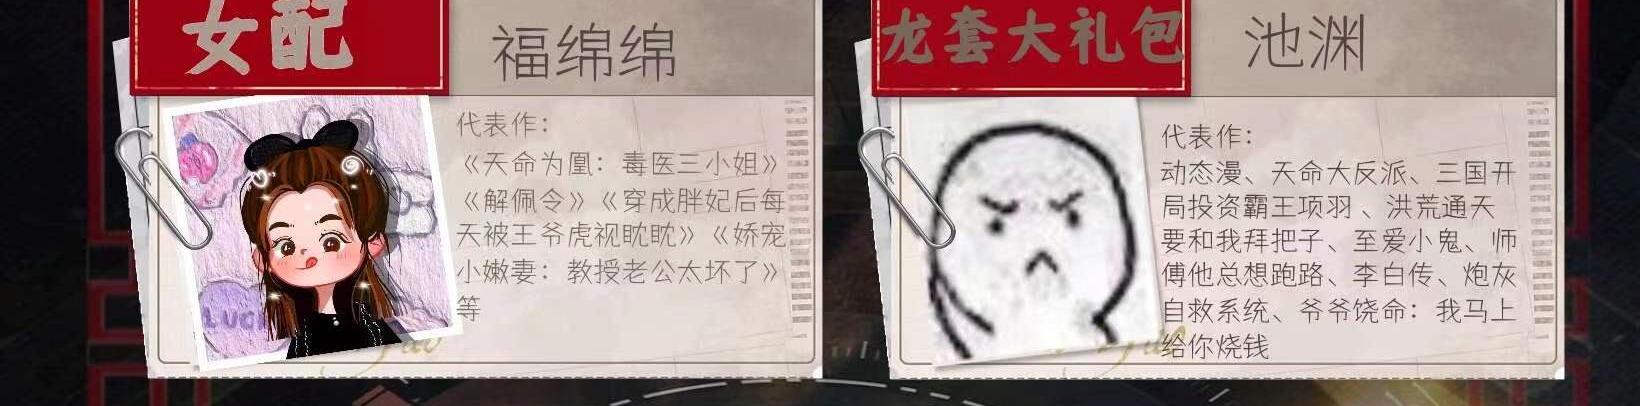 女配
福绵绵
代表作：
《天命为凰：毒医三小姐》
《解佩令》《穿成胖妃后每
天被王爷虎视眈眈》《娇宠
小嫩妻：教授老公太坏了》
等
龙套大礼包
池渊
代表作：
动态漫、天命大反派、三国开
局投资霸王项羽、洪荒通天
要和我拜把子、至爱小鬼、师
傅他总想跑路、李白传、炮灰
自救系统、爷爷饶命：我马上
给你烧钱